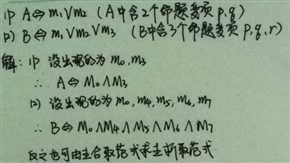 1) A⇔m₁∨m₂ (A中含2个命题变项 p,q)
2) B⇔m₁∨m₂∨m₃ (B中含3个命题变项 p,q,r)
解: 1) 没出现的为 m₀,m₃
∴ A⇔M₀∧M₃
2) 没出现的为 m₀,m₄,m₅,m₆,m₇
∴ B⇔M₀∧M₄∧M₅∧M₆∧M₇
反之也可由主合取范式求主析取范式